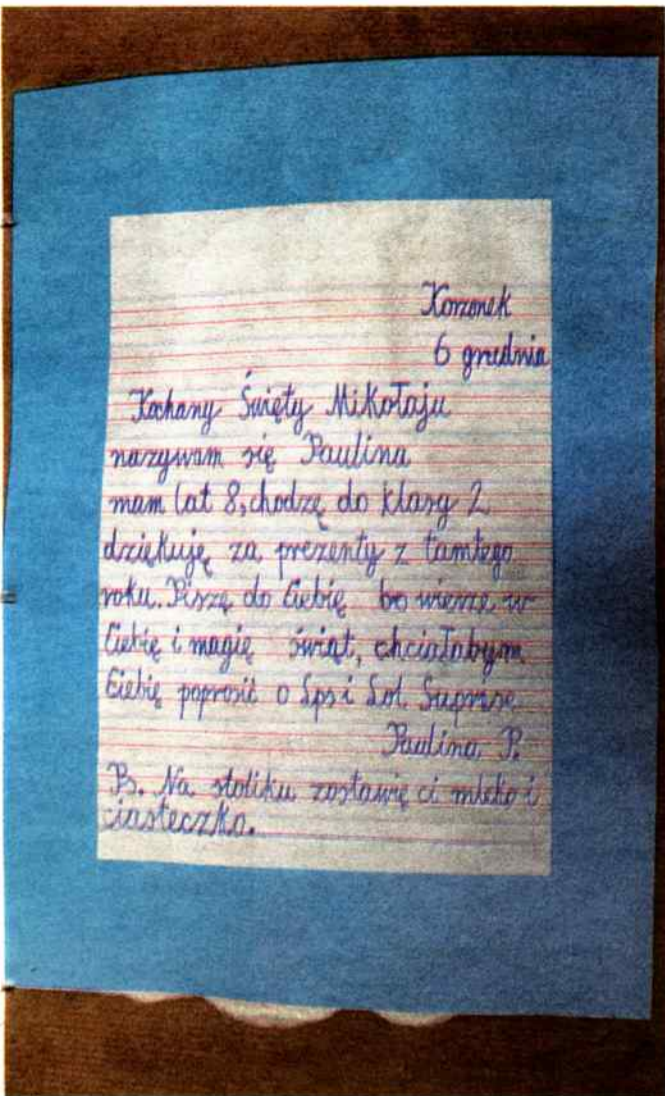 Korzonek
6 grudnia
Kochany Święty Mikołaju
nazywam się Paulina
mam lat 8, chodzę do klasy 2
dziękuję za prezenty z tamtego
roku. Piszę do Ciebie bo wierzę w
Ciebie i magię świąt, chciałabym
Ciebie poprosić o Lps i Lol Suprise
Paulina P.
Ps. Na stoliku zostawię ci mleko i
ciasteczka.